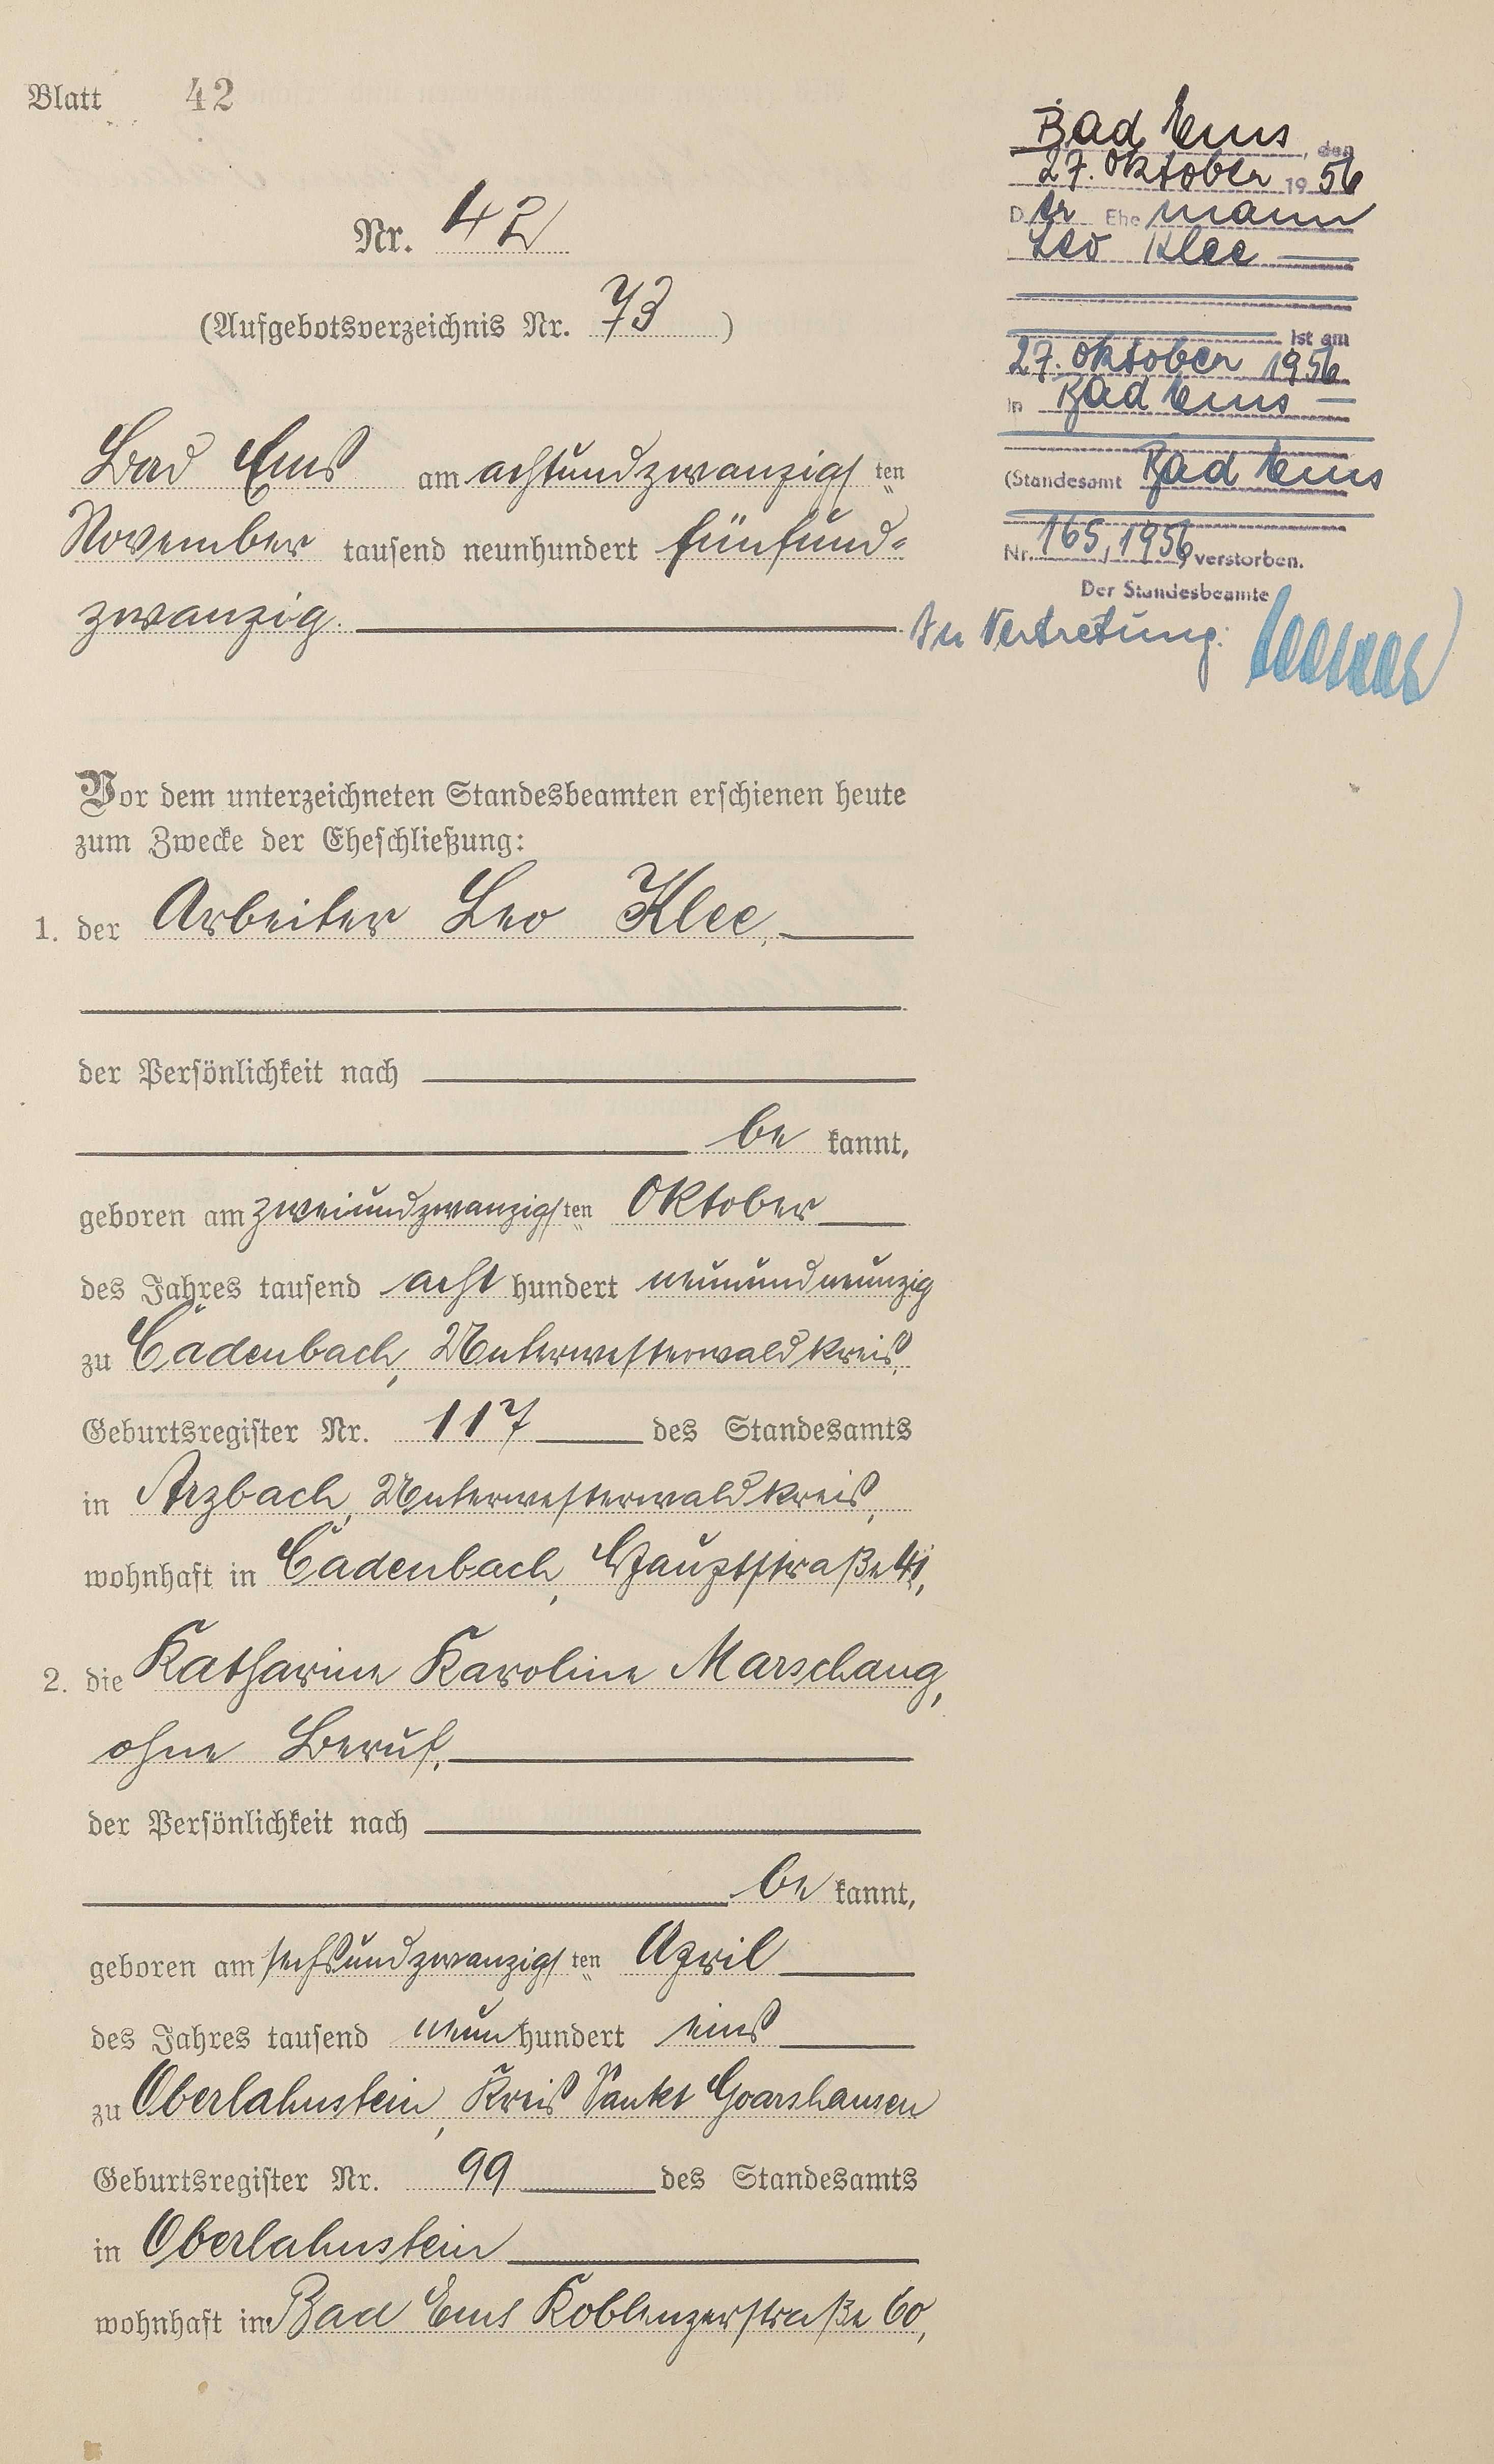 Blatt 42
Nr. 42
(Aufgebotsverzeichnis Nr. 73)
Bad Ems am achtundzwanzigsten
November tausend neunhundert fünfund-
zwanzig.
Vor dem unterzeichneten Standesbeamten erschienen heute
zum Zwecke der Eheschließung:
1. der Arbeiter Leo Klee,
der Persönlichkeit nach
be kannt,
geboren am zweiundzwanzigsten Oktober
des Jahres tausend acht hundert neunundneunzig
zu Cadenbach, Unterwesterwaldkreis,
Geburtsregister Nr. 117 des Standesamts
in Arzbach, Unterwesterwaldkreis,
wohnhaft in Cadenbach, Hauptstraße 41,
2. die Katharine Karoline Marschang,
ohne Beruf,
der Persönlichkeit nach
be kannt,
geboren am sechsundzwanzigsten April
des Jahres tausend neun hundert eins
zu Oberlahnstein, Kreis Sankt Goarshausen
Geburtsregister Nr. 99 des Standesamts
in Oberlahnstein
wohnhaft in Bad Ems Koblenzerstraße 60,
Bad Ems, den
27. Oktober 1956
Der Ehemann
Leo Klee
ist am
27. Oktober 1956
in Bad Ems
(Standesamt Bad Ems
Nr. 165/1956 verstorben.
Der Standesbeamte
In Vertretung: